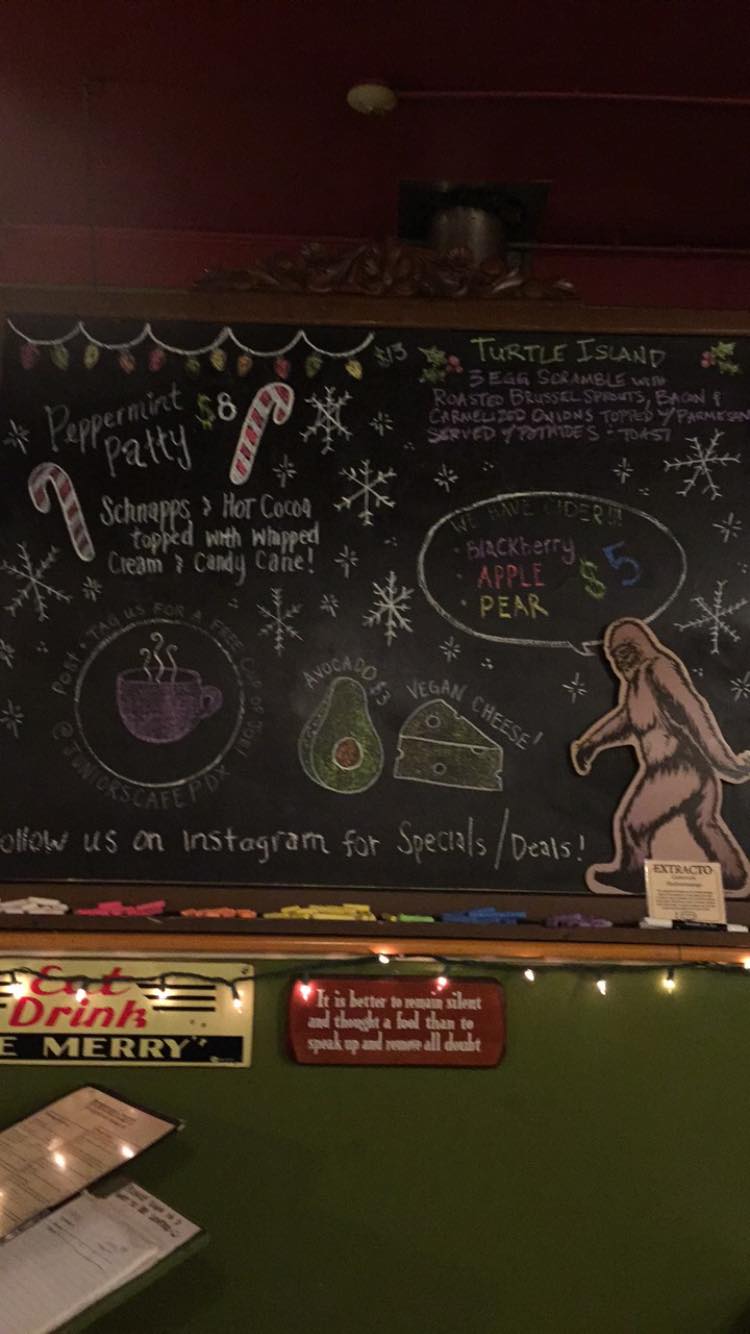 Peppermint $8
Patty
Schnapps & Hot Cocoa
topped with whipped
Cream & Candy Cane!
$13 TURTLE ISLAND
3 EGG SCRAMBLE WITH
ROASTED BRUSSEL SPROUTS, BACON &
CARMELIZED ONIONS TOPPED W/PARMESAN
SERVED W/POTATOES & TOAST
WE HAVE CIDER!!!
• Blackberry
• APPLE
• PEAR
$5
POST & TAG US FOR A FREE CUP OF JOE!
@JUNIORSCAFEPDX
AVOCADO $3
VEGAN CHEESE!
ollow us on Instagram for Specials/Deals!
EXTRACTO
Eat
Drink
E MERRY
It is better to remain silent
and thought a fool than to
speak up and remove all doubt